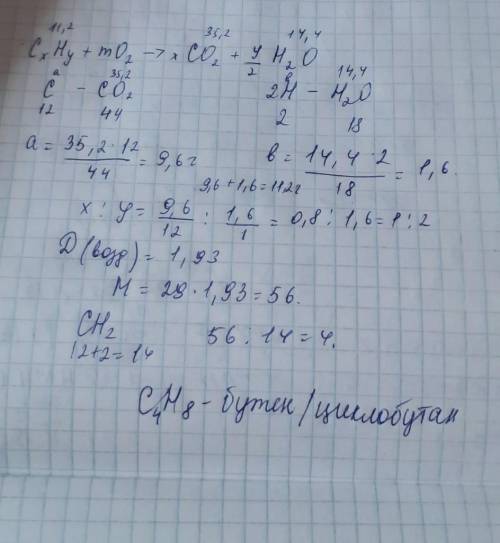 11,2 35,2 14,4
CxHy + mO2 → xCO2 + y/2 H2O
a 35,2 в 14,4
C - CO2 2H - H2O
12 44 2 18
a = 35,2·12/44 = 9,6г в = 14,4·2/18 = 1,6.
9,6+1,6=11,2г
x : y = 9,6/12 : 1,6/1 = 0,8 : 1,6 = 1 : 2
D(возд) = 1,93
M = 29·1,93 = 56.
CH2 56 : 14 = 4.
12+2=14
C4H8 - бутен/циклобутан